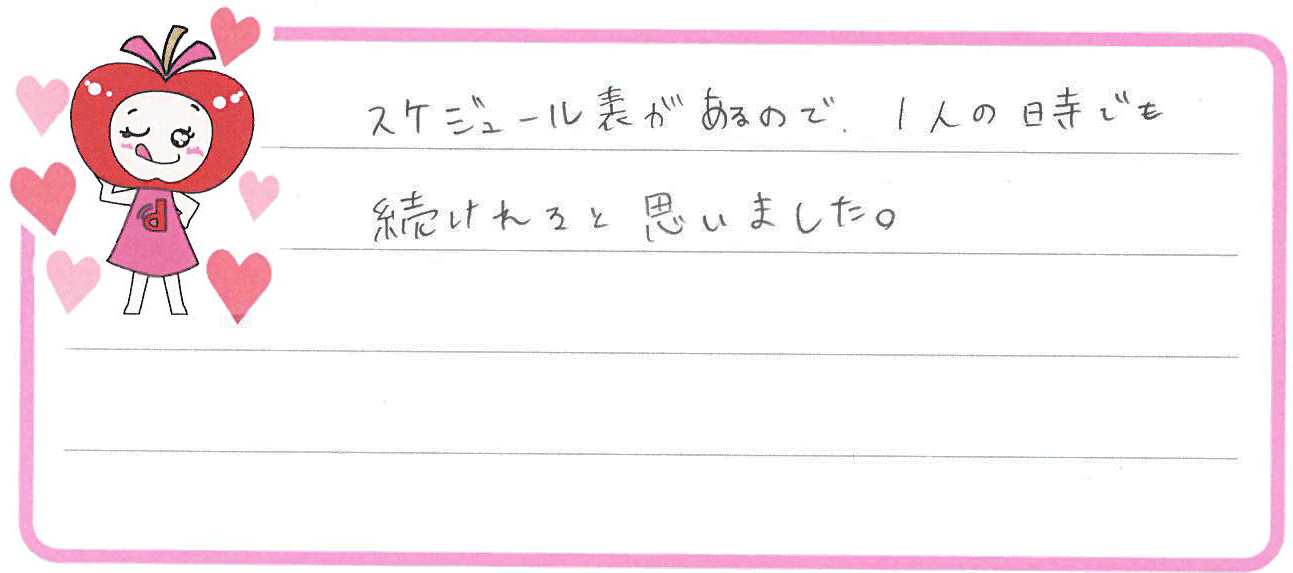 スケジュール表があるので、1人の時でも
続けれると思いました。
d